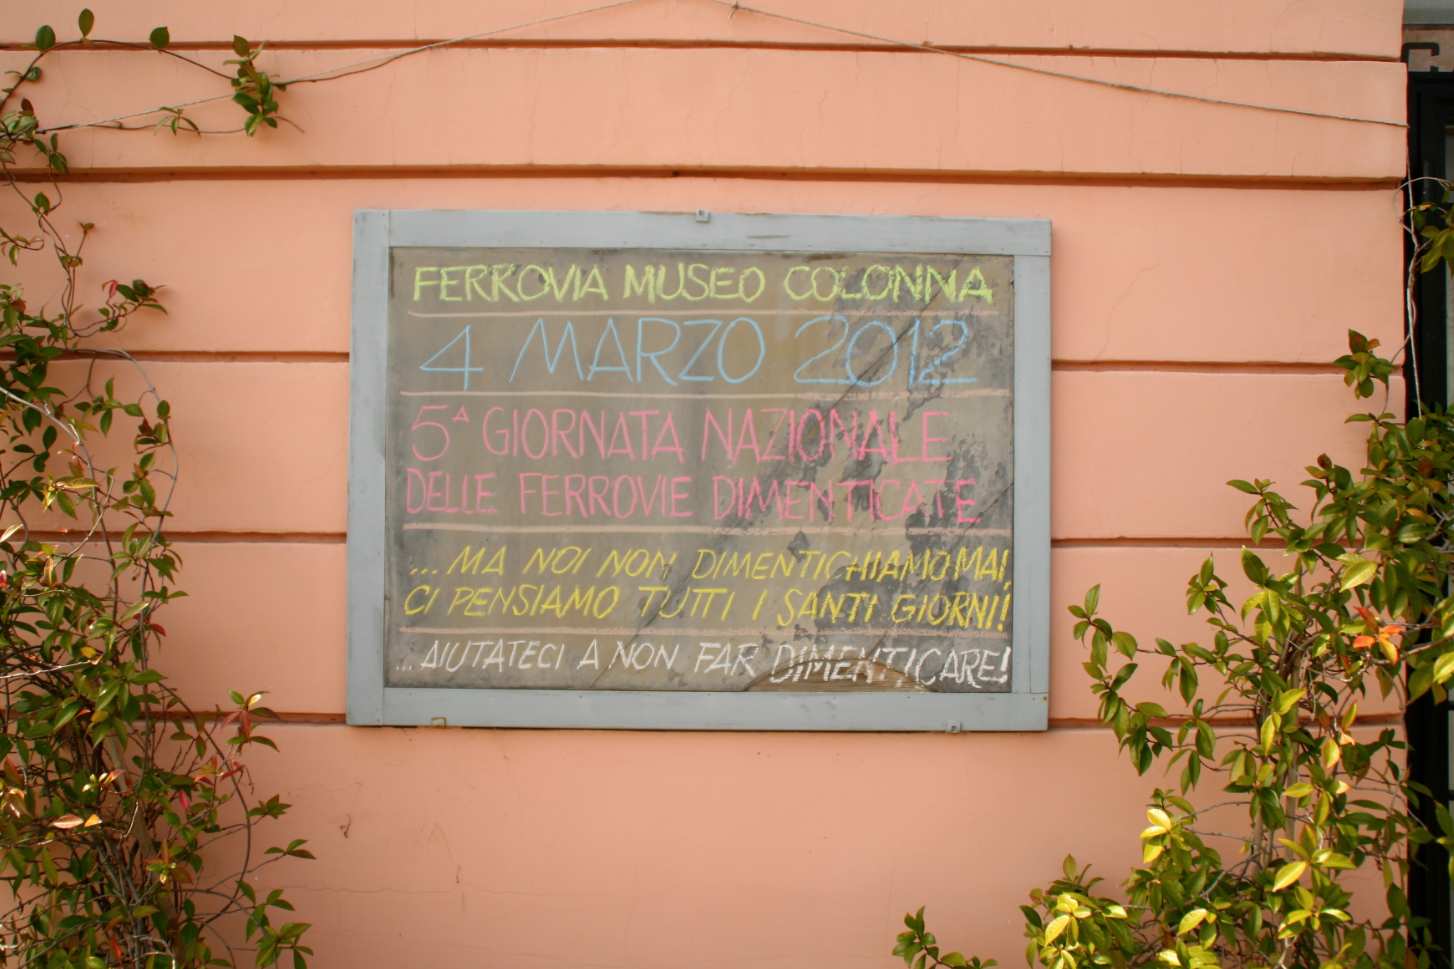 FERROVIA MUSEO COLONNA
4 MARZO 2012
5ª GIORNATA NAZIONALE
DELLE FERROVIE DIMENTICATE
... MA NOI NON DIMENTICHIAMO MAI,
CI PENSIAMO TUTTI I SANTI GIORNI!
... AIUTATECI A NON FAR DIMENTICARE!